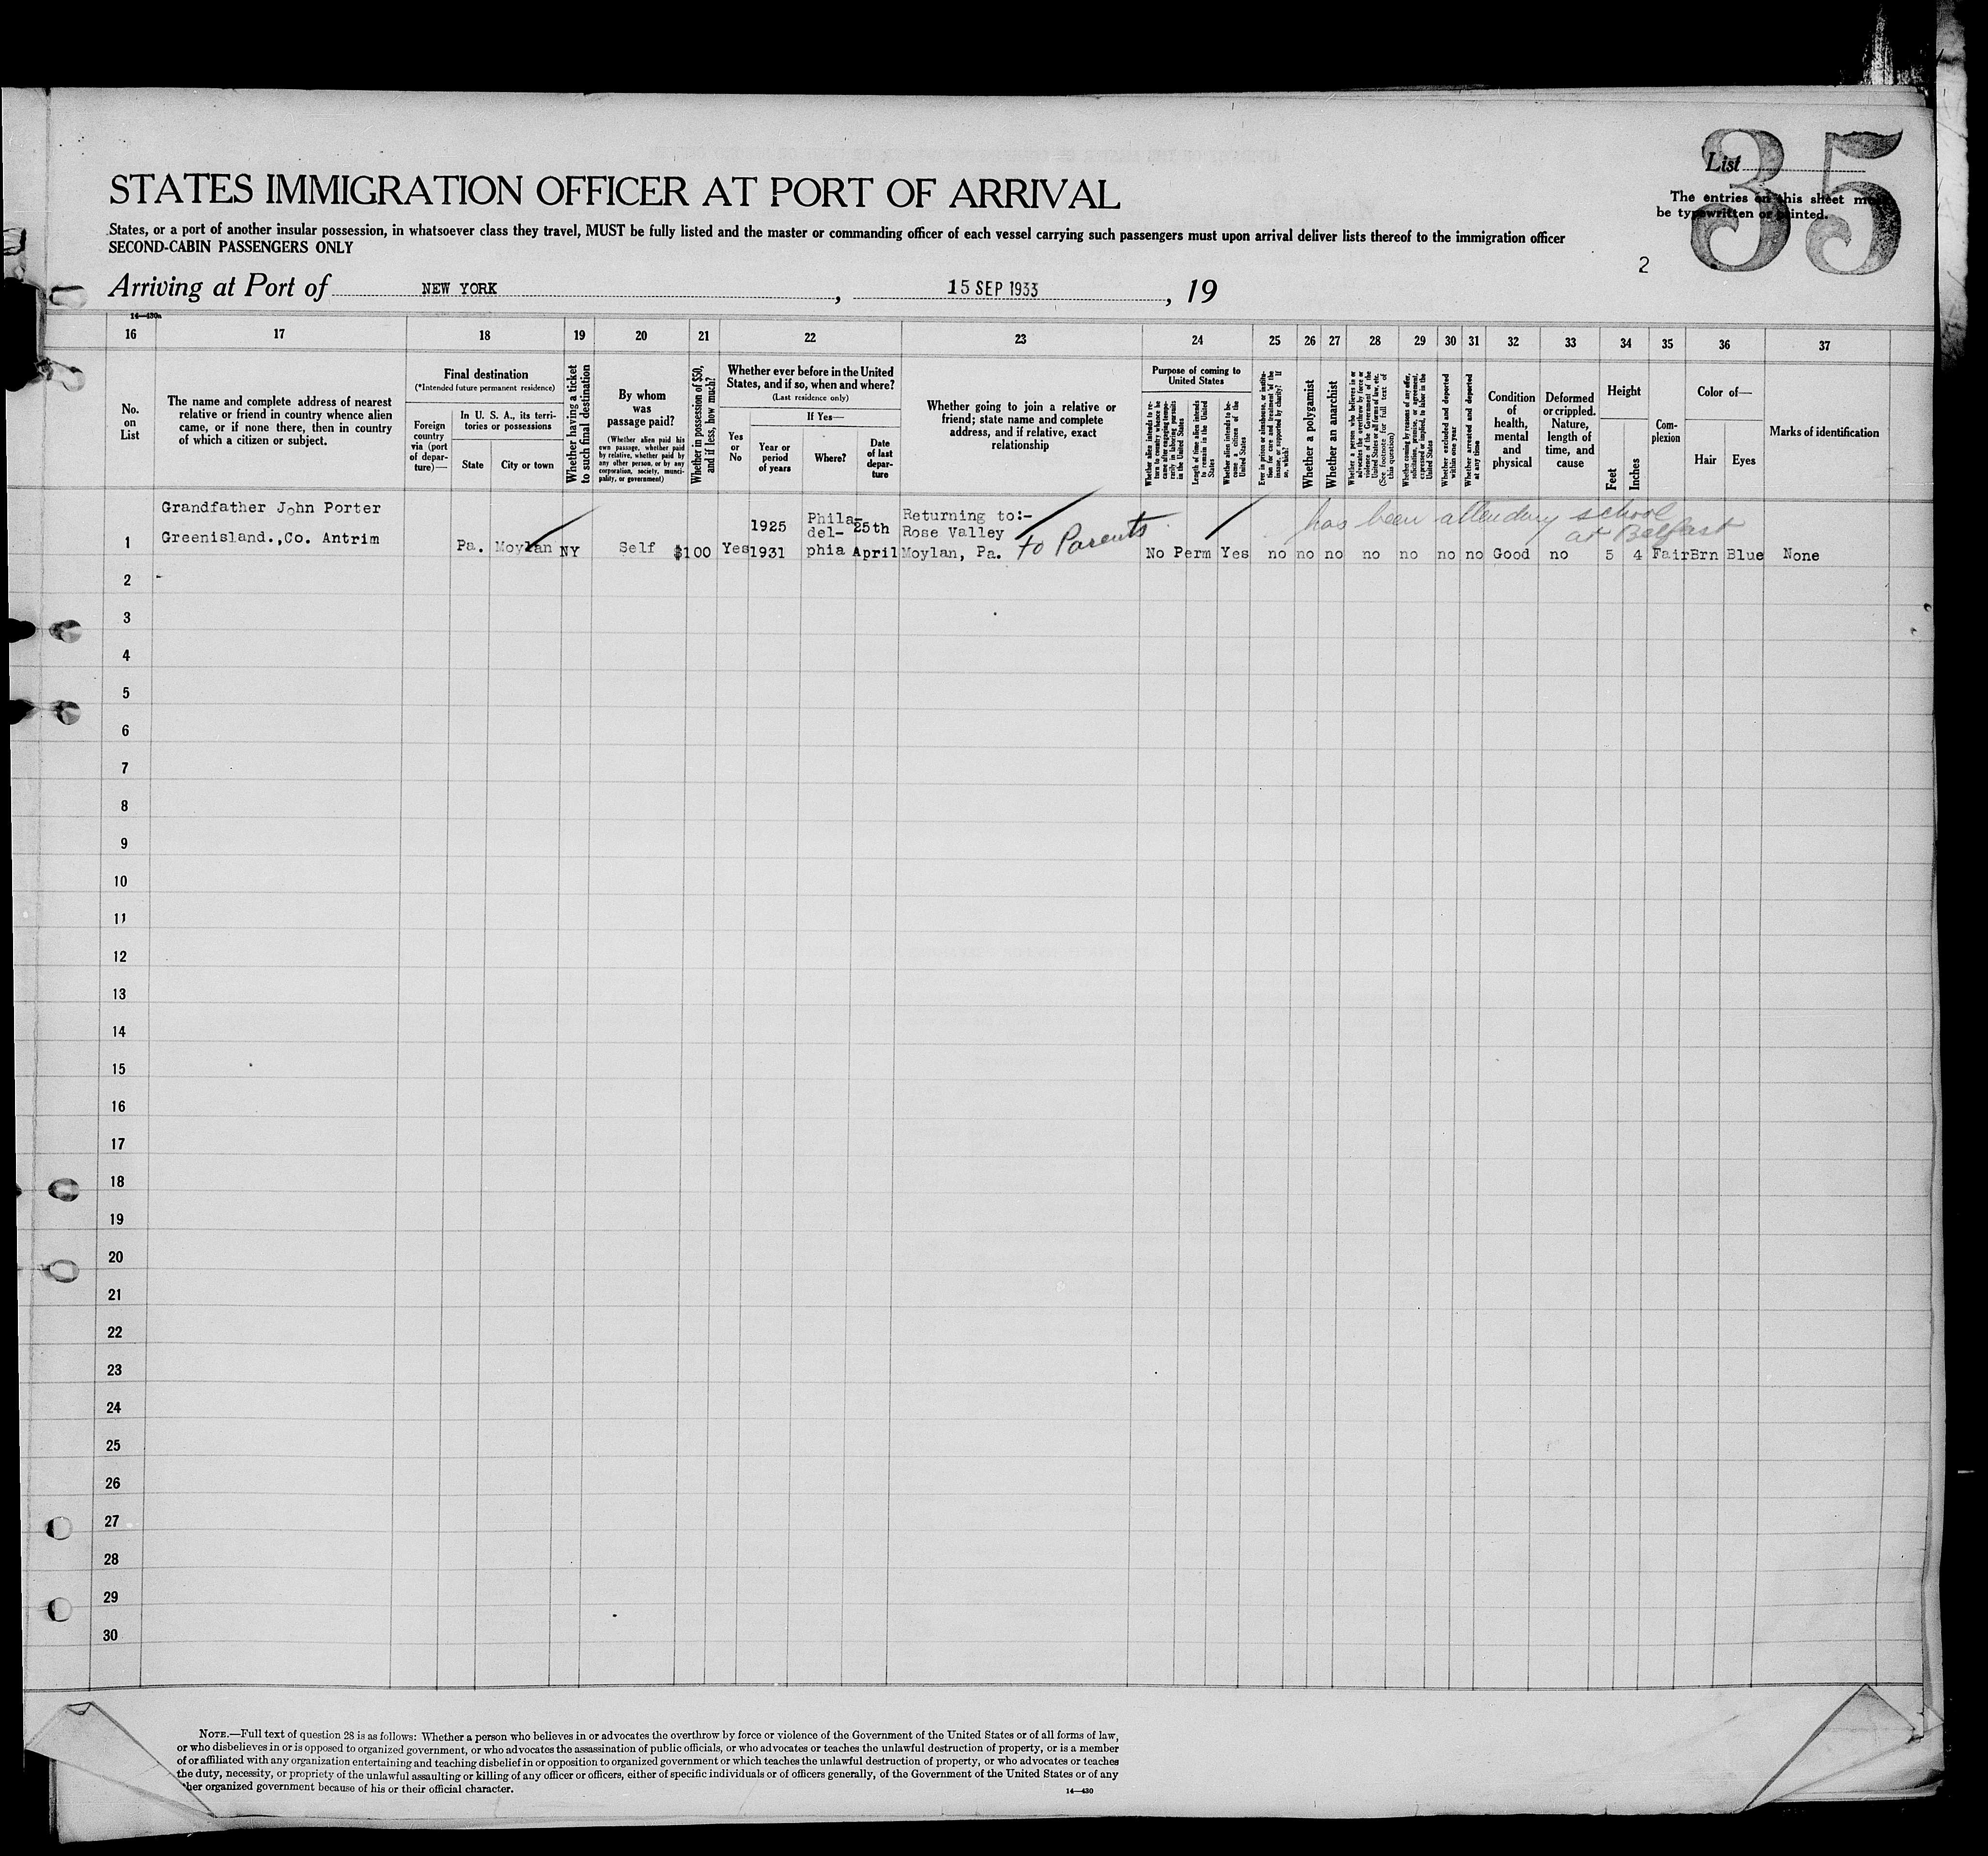 35
List
The entries on this sheet
be typewritten or printed.
STATES IMMIGRATION OFFICER AT PORT OF ARRIVAL
States, or a port of another insular possession, in whatsoever class they travel, MUST be fully listed and the master or commanding officer of each vessel carrying such passengers must upon arrival deliver lists thereof to the immigration officer
SECOND-CABIN PASSENGERS ONLY
2
Arriving at Port of NEW YORK, 15 SEP 1933, 19
14—430a
16 17 18 19 20 21 22 23 24 25 26 27 28 29 30 31 32 33 34 35 36 37
No.
on
List
The name and complete address of nearest
relative or friend in country whence alien
came, or if none there, then in country
of which a citizen or subject.
Final destination
(*Intended future permanent residence)
Foreign
country
via (port
of depar-
ture)—
In U. S. A., its terri-
tories or possessions
State
City or town
Whether having a ticket
to such final destination
By whom
was
passage paid?
(Whether alien paid his
own passage, whether paid
by relative, whether paid by
any other person, or by any
corporation, society, munici-
pality, or government)
Whether in possession of $50,
and if less, how much?
Whether ever before in the United
States, and if so, when and where?
(Last residence only)
Yes
or
No
If Yes—
Year or
period
of years
Where?
Date
of last
depar-
ture
Whether going to join a relative or
friend; state name and complete
address, and if relative, exact
relationship
Purpose of coming to
United States
Whether alien intends to re-
turn to country whence he
came after engaging tempo-
rarily in laboring pursuits
in the United States
Length of time alien intends
to remain in the United
States
Whether alien intends to be-
come a citizen of the
United States
Ever in prison or almshouse, or institu-
tion for care and treatment of the
insane, or supported by charity? If
so, which?
Whether a polygamist
Whether an anarchist
Whether a person who believes in or
advocates the overthrow by force or
violence of the Government of the
United States or all forms of law, etc.
(See footnote for full text of
this question)
Whether coming by reasons of any offer,
solicitation, promise, or agreement,
expressed or implied, to labor in the
United States
Whether excluded and deported
within one year
Whether arrested and deported
at any time
Condition
of
health,
mental
and
physical
Deformed
or crippled.
Nature,
length of
time, and
cause
Height
Feet
Inches
Com-
plexion
Color of—
Hair
Eyes
Marks of identification
Grandfather John Porter
Greenisland.,Co. Antrim
1
Pa. Moylan NY Self $100 Yes
1925
1931
Phila-
del-
phia
25th
April
Returning to:-
Rose Valley
Moylan, Pa.
to Parents
has been attending school
at Belfast
No Perm Yes no no no no no no no Good no 5 4 Fair Brn Blue None
2
3
4
5
6
7
8
9
10
11
12
13
14
15
16
17
18
19
20
21
22
23
24
25
26
27
28
29
30
NOTE.—Full text of question 28 is as follows: Whether a person who believes in or advocates the overthrow by force or violence of the Government of the United States or of all forms of law,
or who disbelieves in or is opposed to organized government, or who advocates the assassination of public officials, or who advocates or teaches the unlawful destruction of property, or is a member
of or affiliated with any organization entertaining and teaching disbelief in or opposition to organized government or which teaches the unlawful destruction of property, or who advocates or teaches
the duty, necessity, or propriety of the unlawful assaulting or killing of any officer or officers, either of specific individuals or of officers generally, of the Government of the United States or of any
other organized government because of his or their official character.
14—430